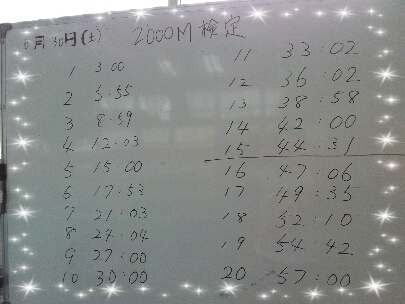 6月30日(土) 2000M検定
1 3:00
2 5:55
3 8:59
4 12:03
5 15:00
6 17:53
7 21:03
8 24:04
9 27:00
10 30:00
11 33:02
12 36:02
13 38:58
14 42:00
15 44:31
16 47:06
17 49:35
18 52:10
19 54:42
20 57:00